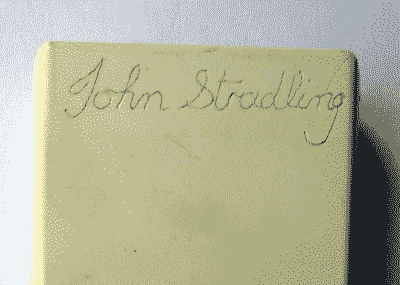 John Stradling